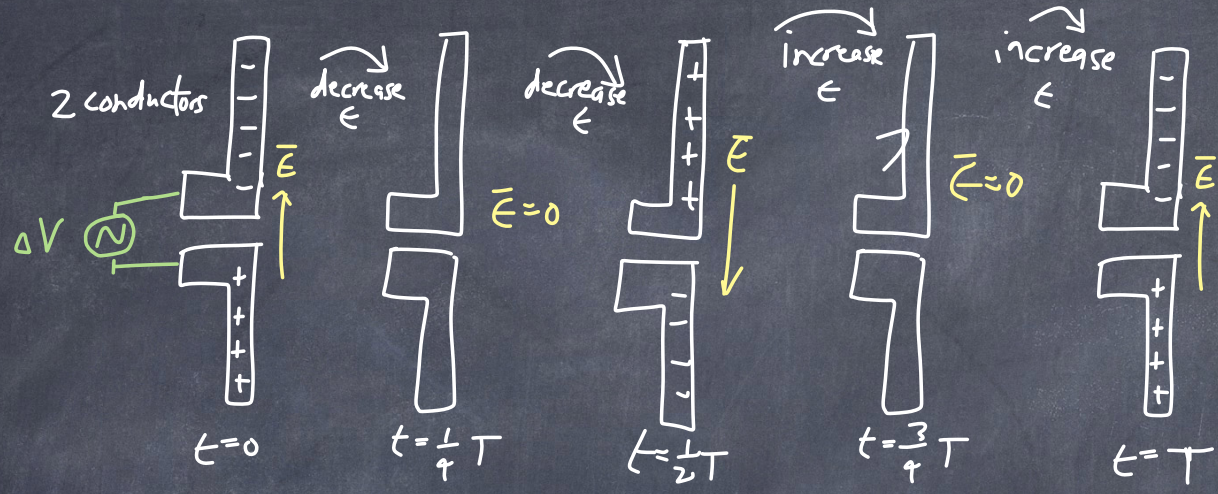 2 conductors
ΔV
Ē
t=0
decrease
ϵ
Ē=0
t=1/4 T
decrease
ϵ
Ē
t=1/2 T
increase
ϵ
Ē=0
t=3/4 T
increase
ϵ
Ē
t=T